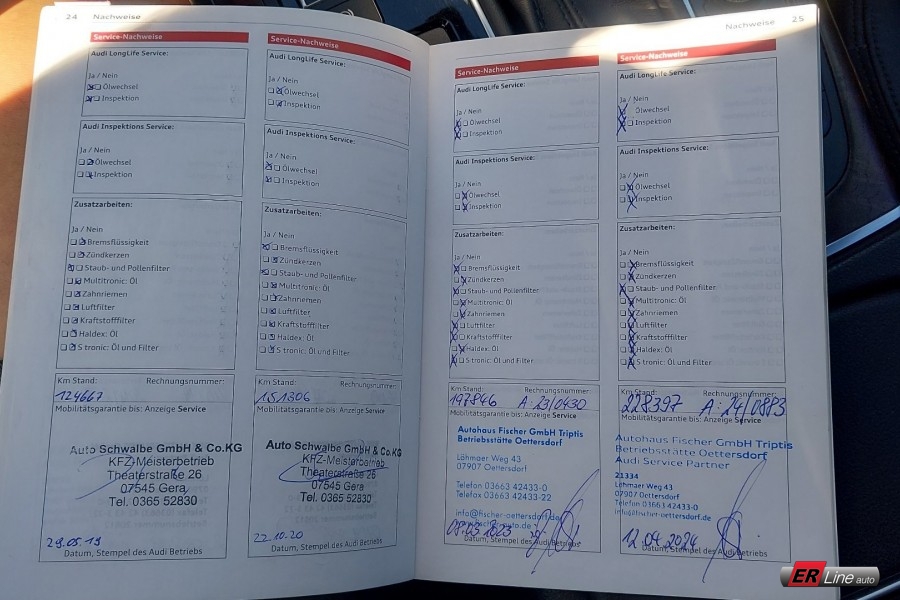 24 Nachweise
Service-Nachweise
Audi LongLife Service:
Ja / Nein
Ölwechsel
Inspektion
Audi Inspektions Service:
Ja / Nein
Ölwechsel
Inspektion
Zusatzarbeiten:
Ja / Nein
Bremsflüssigkeit
Zündkerzen
Staub- und Pollenfilter
Multitronic: Öl
Zahnriemen
Luftfilter
Kraftstofffilter
Haldex: Öl
S tronic: Öl und Filter
Km Stand: Rechnungsnummer:
124667
Mobilitätsgarantie bis: Anzeige Service
Auto Schwalbe GmbH & Co.KG
KFZ-Meisterbetrieb
Theaterstraße 26
07545 Gera
Tel. 0365 52830
29.05.19
Datum, Stempel des Audi Betriebs
Service-Nachweise
Audi LongLife Service:
Ja / Nein
Ölwechsel
Inspektion
Audi Inspektions Service:
Ja / Nein
Ölwechsel
Inspektion
Zusatzarbeiten:
Ja / Nein
Bremsflüssigkeit
Zündkerzen
Staub- und Pollenfilter
Multitronic: Öl
Zahnriemen
Luftfilter
Kraftstofffilter
Haldex: Öl
S tronic: Öl und Filter
Km Stand: Rechnungsnummer:
151306
Mobilitätsgarantie bis: Anzeige Service
Auto Schwalbe GmbH & Co.KG
KFZ-Meisterbetrieb
Theaterstraße 26
07545 Gera
Tel. 0365 52830
22.10.20
Datum, Stempel des Audi Betriebs
Nachweise 25
Service-Nachweise
Audi LongLife Service:
Ja / Nein
Ölwechsel
Inspektion
Audi Inspektions Service:
Ja / Nein
Ölwechsel
Inspektion
Zusatzarbeiten:
Ja / Nein
Bremsflüssigkeit
Zündkerzen
Staub- und Pollenfilter
Multitronic: Öl
Zahnriemen
Luftfilter
Kraftstofffilter
Haldex: Öl
S tronic: Öl und Filter
Km Stand: Rechnungsnummer:
197846 A: 23/0430
Mobilitätsgarantie bis: Anzeige Service
Autohaus Fischer GmbH Triptis
Betriebsstätte Oettersdorf
Löhmaer Weg 43
07907 Oettersdorf
Telefon 03663 42433-0
Telefax 03663 42433-22
info@fischer-oettersdorf.de
Datum, Stempel des Audi Betriebs
Service-Nachweise
Audi LongLife Service:
Ja / Nein
Ölwechsel
Inspektion
Audi Inspektions Service:
Ja / Nein
Ölwechsel
Inspektion
Zusatzarbeiten:
Ja / Nein
Bremsflüssigkeit
Zündkerzen
Staub- und Pollenfilter
Multitronic: Öl
Zahnriemen
Luftfilter
Kraftstofffilter
Haldex: Öl
S tronic: Öl und Filter
Km Stand: Rechnungsnummer:
228397 A: 24/0883
Mobilitätsgarantie bis: Anzeige Service
Autohaus Fischer GmbH Triptis
Betriebsstätte Oettersdorf
Audi Service Partner
21334
Löhmaer Weg 43
07907 Oettersdorf
Telefon 03663 42433-0
info@fischer-oettersdorf.de
12.04.2024
Datum, Stempel des Audi Betriebs
ER Line auto